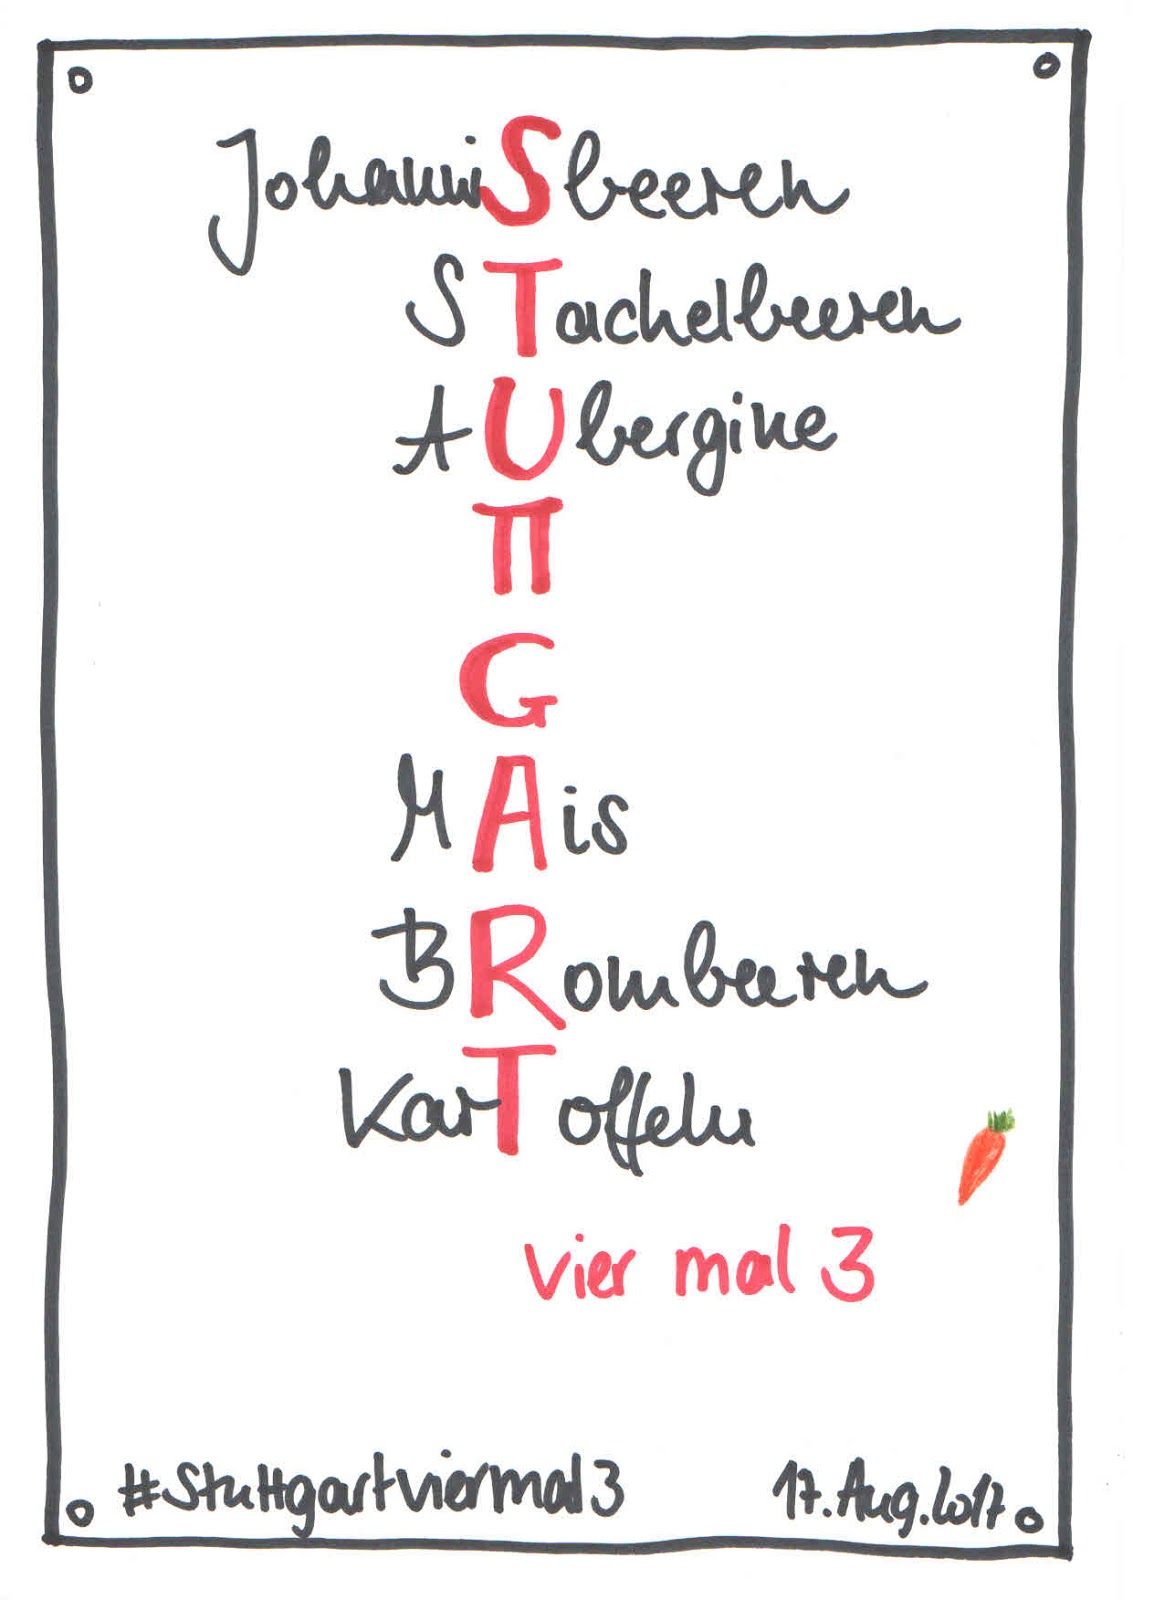 JohanniSbeeren
STachelbeeren
AUbergine
TT
G
MAis
BRombeeren
KarToffeln
vier mal 3
#Stuttgartviermal3
17.Aug.2017